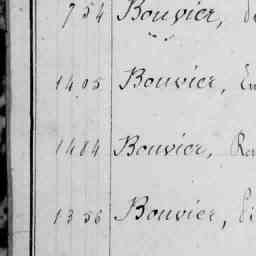 754 Bouvier,
1405 Bouvier,
1484 Bouvier,
1356 Bouvier,